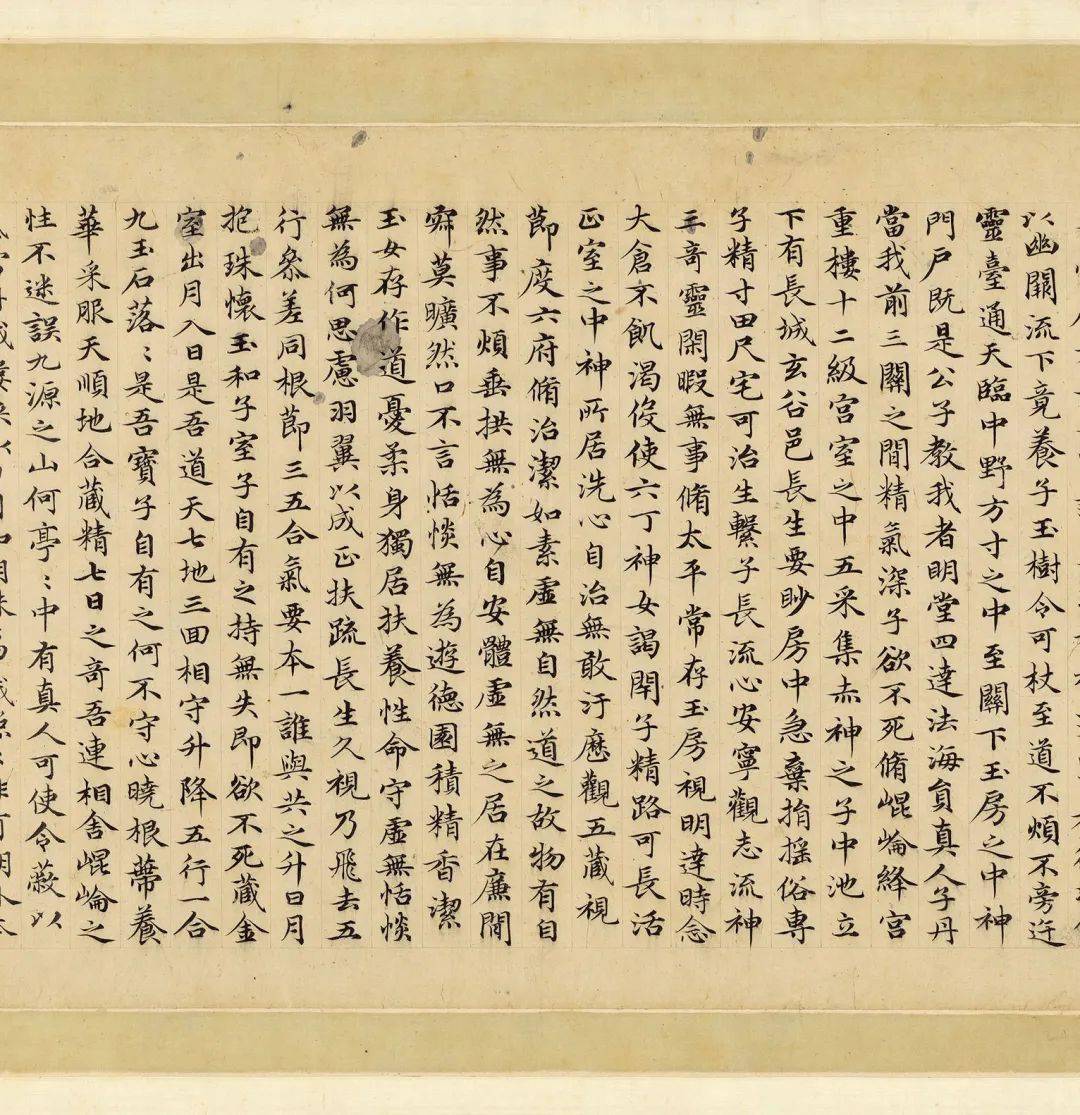 以幽關流下竟養子玉樹令可杖至道不煩不旁迕
靈臺通天臨中野方寸之中至關下玉房之中神
門戶既是公子教我者明堂四達法海負真人子丹
當我前三關之間精氣深子欲不死脩崐崘絳宮
重樓十二級宮室之中五采集赤神之子中池立
下有長城玄谷邑長生要眇房中急棄捐搖俗專
子精寸田尺宅可治生繫子長流心安寧觀志流神
三奇靈閑暇無事脩太平常存玉房視明達時念
大倉不飢渴役使六丁神女謁閇子精路可長活
正室之中神所居洗心自治無敢汙歷觀五藏視
節度六府脩治潔如素虛無自然道之故物有自
然事不煩垂拱無為心自安體虛無之居在廉間
寂莫曠然口不言恬惔無為遊德園積精香潔
玉女存作道憂柔身獨居扶養性命守虛無恬惔
無為何思慮羽翼以成正扶疏長生久視乃飛去五
行叅差同根節三五合氣要本一誰與共之升日月
抱珠懷玉和子室子自有之持無失即欲不死藏金
室出月入日是吾道天七地三回相守升降五行一合
九玉石落〻是吾寶子自有之何不守心曉根蔕養
華采服天順地合藏精七日之奇吾連相舍崐崘之
性不迷誤九源之山何亭〻中有真人可使令蔽以